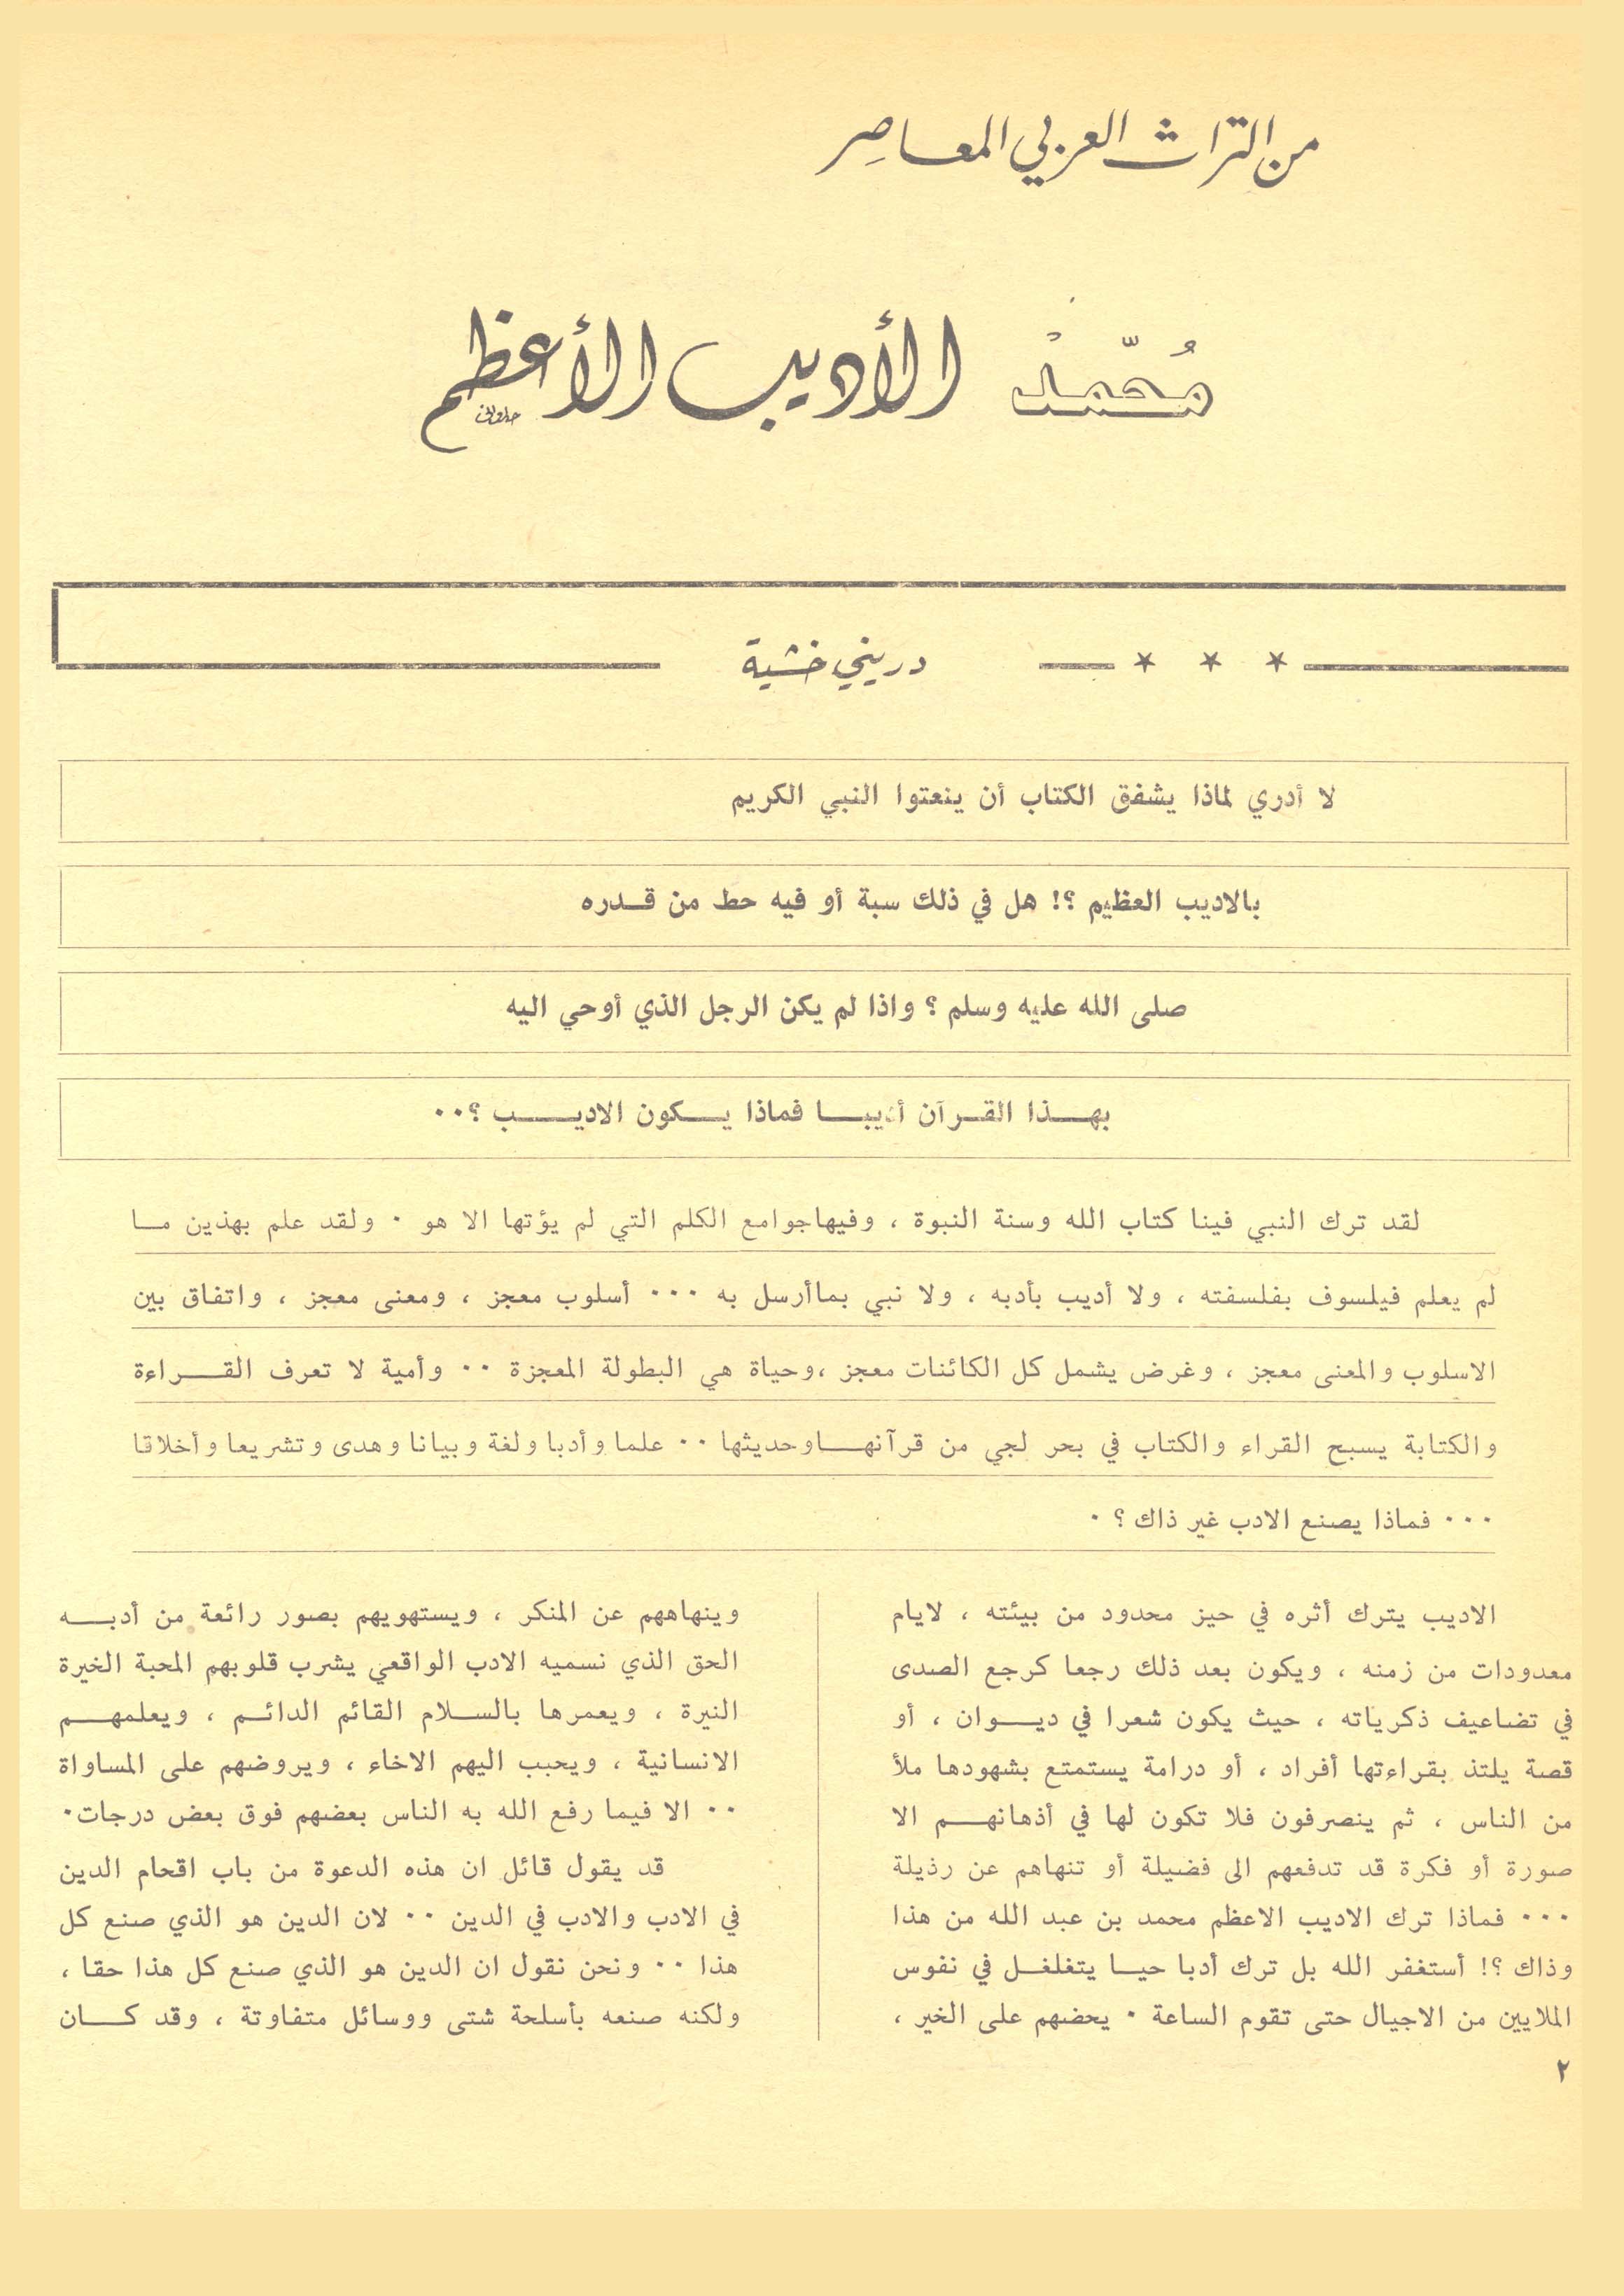 من التراث العربي المعاصر
مُحمّدْ الأديب الأعظم
دريني خشبة
* * *
لا أدري لماذا يشفق الكتاب أن ينعتوا النبي الكريم
بالاديب العظيم ؟! هل في ذلك سبة أو فيه حط من قـدره
صلى الله عليه وسلم ؟ واذا لم يكن الرجل الذي أوحي اليه
بهـذا القـرآن أديبـا فماذا يـكون الاديـب ؟٠٠
لقد ترك النبي فينا كتاب الله وسنة النبوة ، وفيهاجوامع الكلم التي لم يؤتها الا هو ٠ ولقد علم بهذين مـا
لم يعلم فيلسوف بفلسفته ، ولا أديب بأدبه ، ولا نبي بماأرسل به ٠٠٠ أسلوب معجز ، ومعنى معجز ، واتفاق بين
الاسلوب والمعنى معجز ، وغرض يشمل كل الكائنات معجز ،وحياة هي البطولة المعجزة ٠٠ وأمية لا تعرف القـراءة
والكتابة يسبح القراء والكتاب في بحر لجي من قرآنهـاوحديثها ٠٠ علما وأدبا ولغة وبيانا وهدى وتشريعا وأخلاقا
٠٠٠ فماذا يصنع الادب غير ذاك ؟ ٠
الاديب يترك أثره في حيز محدود من بيئته ، لايام
معدودات من زمنه ، ويكون بعد ذلك رجعا كرجع الصدى
في تضاعيف ذكرياته ، حيث يكون شعرا في ديـوان ، أو
قصة يلتذ بقراءتها أفراد ، أو درامة يستمتع بشهودها ملأ
من الناس ، ثم ينصرفون فلا تكون لها في أذهانهـم الا
صورة أو فكرة قد تدفعهم الى فضيلة أو تنهاهم عن رذيلة
٠٠٠ فماذا ترك الاديب الاعظم محمد بن عبد الله من هذا
وذاك ؟! أستغفر الله بل ترك أدبا حيـا يتغلغـل في نفوس
الملايين من الاجيال حتى تقوم الساعة ٠ يحضهم على الخير ،
وينهاهم عن المنكر ، ويستهويهم بصور رائعة من أدبـه
الحق الذي نسميه الادب الواقعي يشرب قلوبهم المحبة الخيرة
النيرة ، ويعمرها بالسـلام القائم الدائـم ، ويعلمهـم
الانسانية ، ويحبب اليهم الاخاء ، ويروضهم على المساواة
٠٠ الا فيما رفع الله به الناس بعضهم فوق بعض درجات٠
قد يقول قائل ان هذه الدعوة من باب اقحام الدين
في الادب والادب في الدين ٠٠ لان الدين هو الذي صنع كل
هذا ٠٠ ونحن نقول ان الدين هو الذي صنع كل هذا حقا ،
ولكنه صنعه بأسلحة شتى ووسائل متفاوتة ، وقد كـان
٢